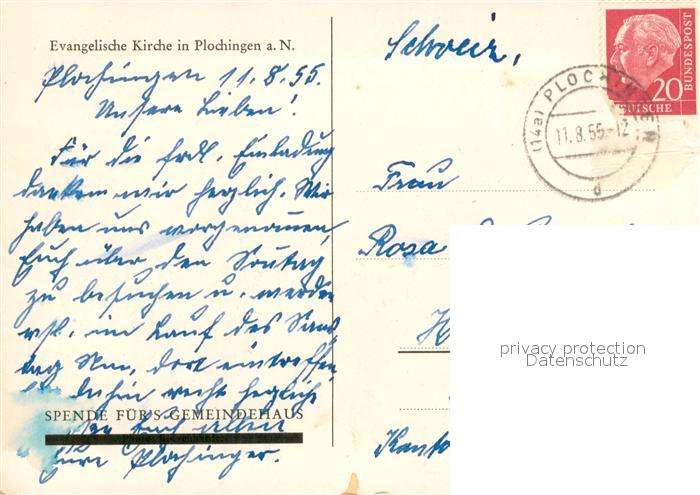 Evangelische Kirche in Plochingen a. N.
Plochingen 11.8.55.
Unsere Lieben!
Für die frdl. Einladung
danken wir herzlich. Wir
haben uns vorgenommen,
Euch über den Sonntag
zu besuchen u. werden
vstl. im Lauf des Sams-
tag Nm. dort eintreffen.
Bis dahin recht herzliche
SPENDE FÜR'S GEMEINDEHAUS
Euch allen
Eure Plochinger.
Schweiz,
20
BUNDESPOST
DEUTSCHE
(14a) PLOCHINGEN
11.8.55.-12
d
Frau
Rosa
Kanto
privacy protection
Datenschutz